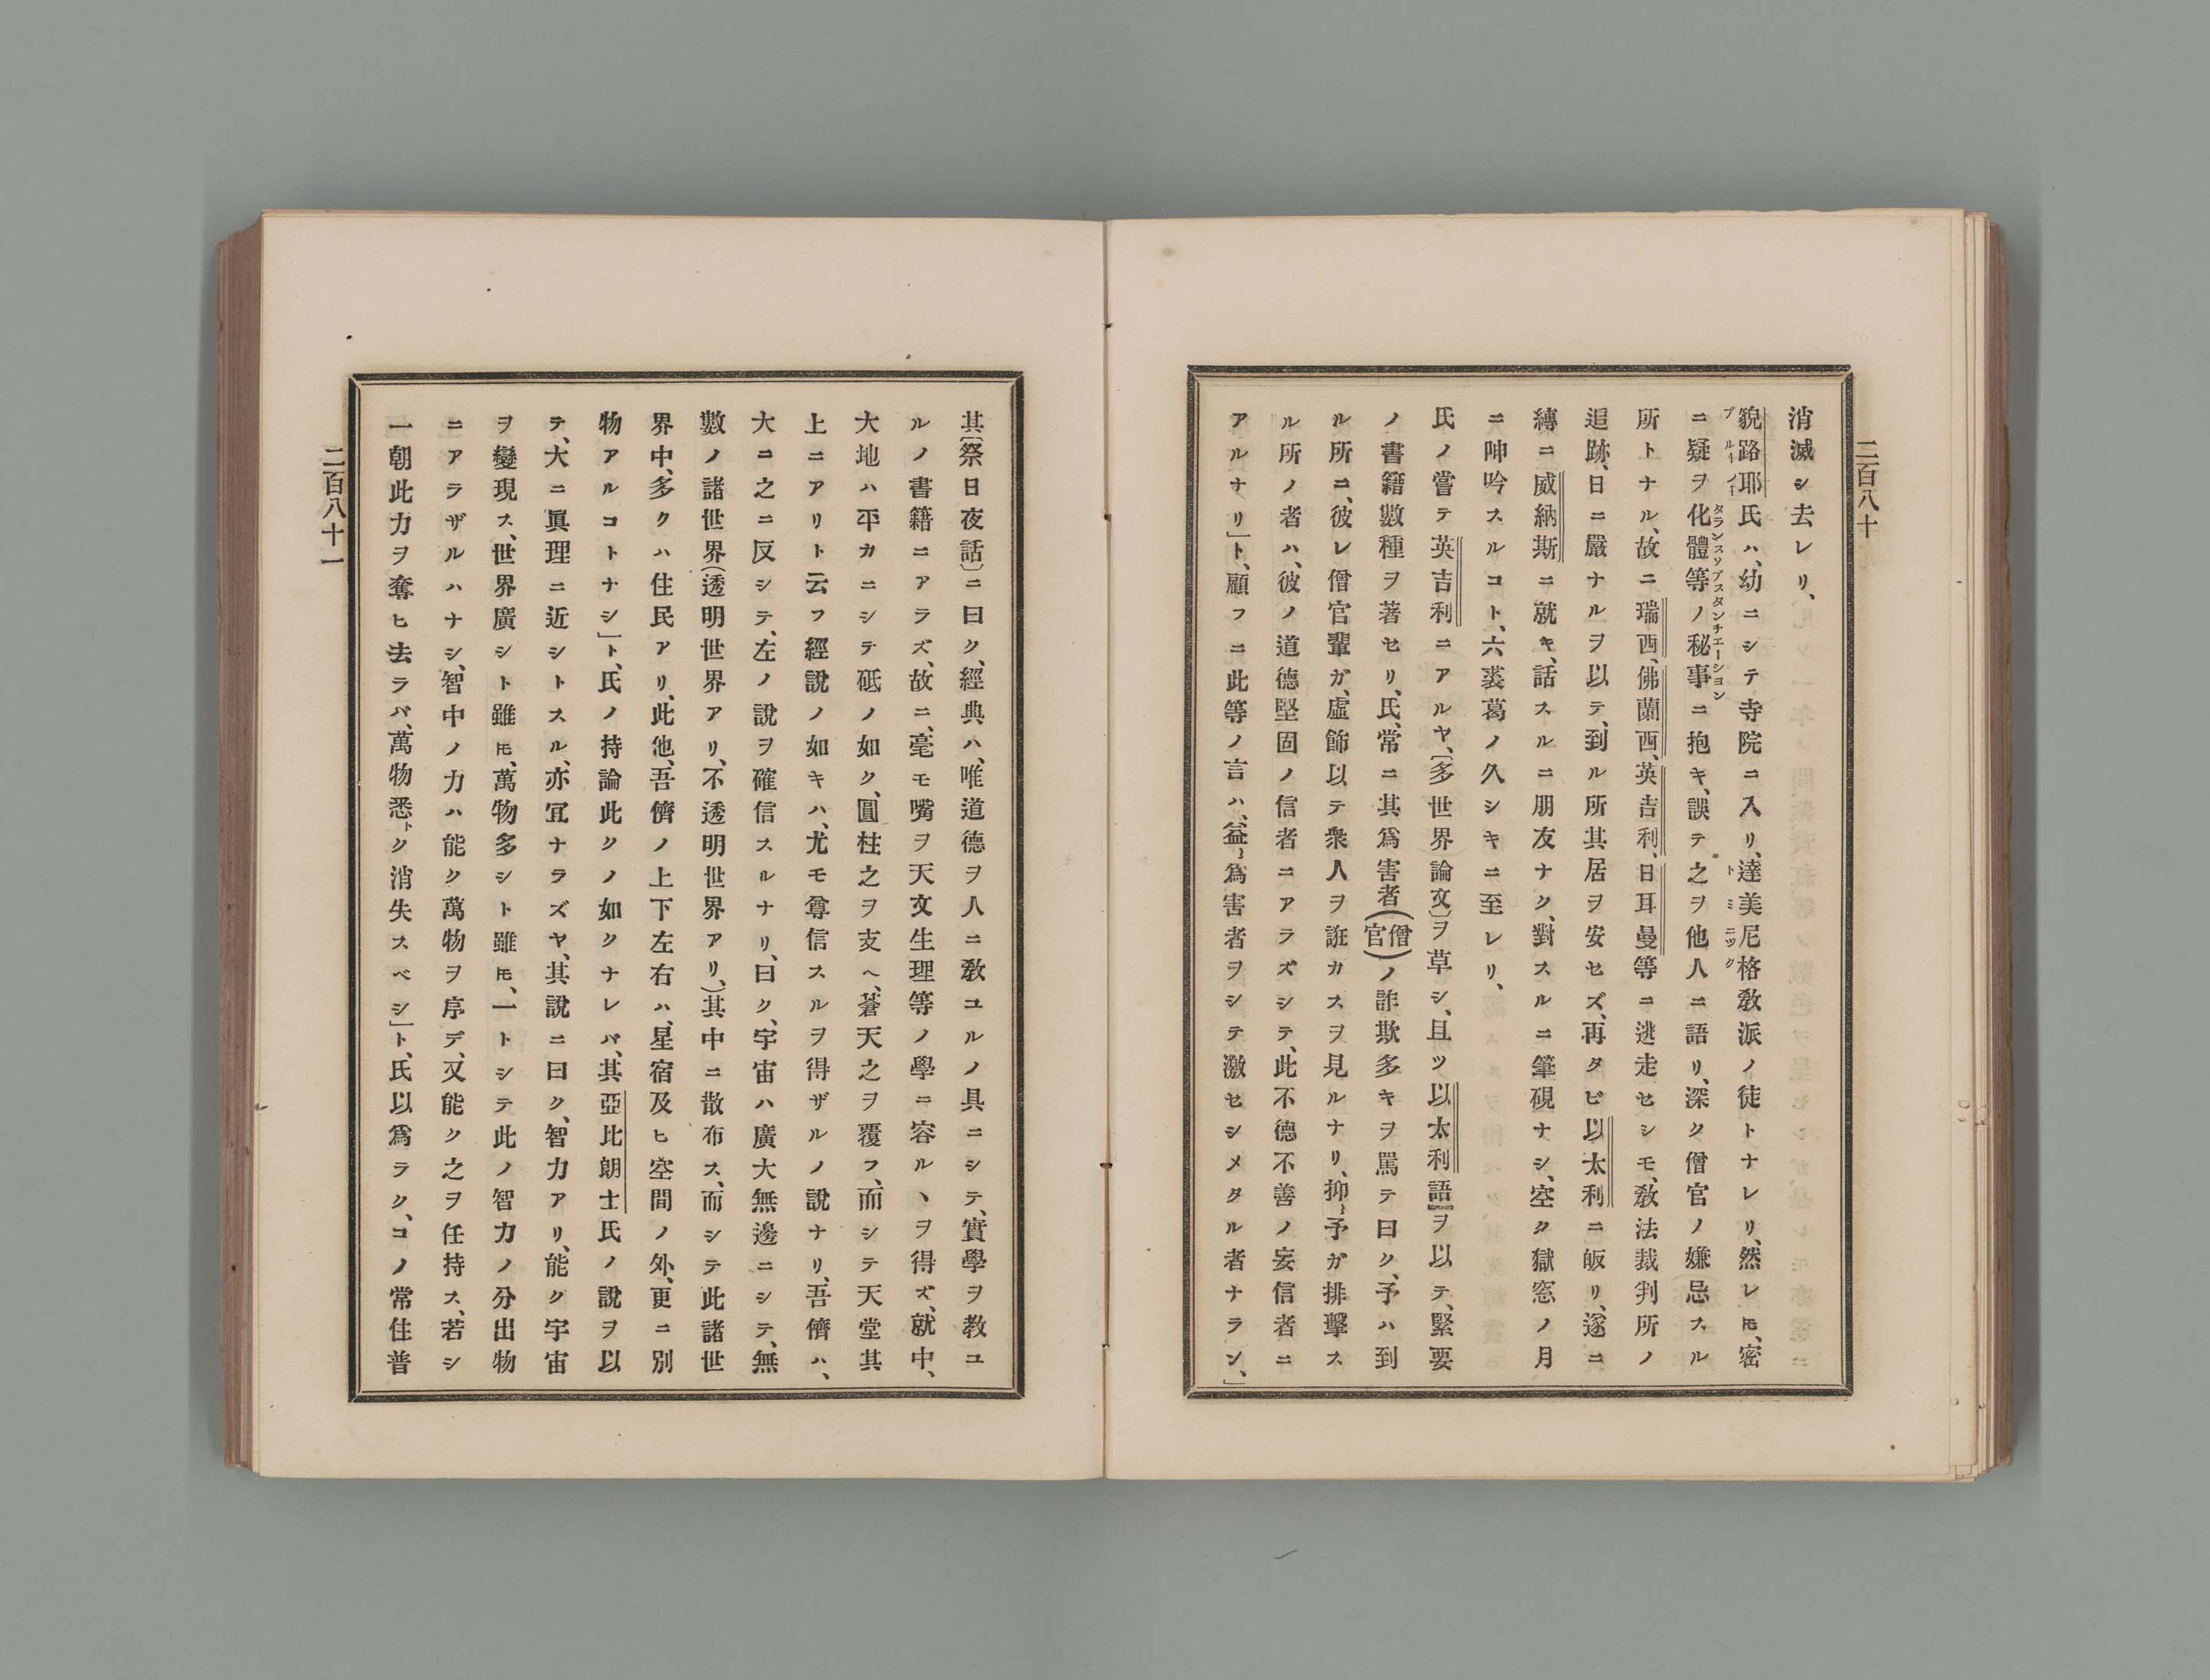 二百八十
消滅シ去レリ、
貌路耶氏ハ、幼ニシテ寺院ニ入リ、達美尼格敎派ノ徒トナレリ、然レ𪜈、密
ブルーノー
トミニツク
ニ疑ヲ化體等ノ秘事ニ抱キ、誤テ之ヲ他人ニ語リ、深ク僧官ノ嫌忌スル
タランスソブスタンチエーシヨン
所トナル、故ニ瑞西、佛蘭西、英吉利、日耳曼等ニ逃走セシモ、敎法裁判所ノ
追跡、日ニ嚴ナルヲ以テ、到ル所其居ヲ安セズ、再タビ以太利ニ皈リ、遂ニ
縛ニ威納斯ニ就キ、話スルニ朋友ナク、對スルニ筆硯ナシ、空ク獄窓ノ月
ニ呻吟スルコト、六裘葛ノ久シキニ至レリ、
氏ノ嘗テ英吉利ニアルヤ、〔多世界論文〕ヲ草シ、且ツ以太利語ヲ以テ、緊要
ノ書籍數種ヲ著セリ、氏、常ニ其爲害者(僧官)ノ詐欺多キヲ罵テ曰ク、予ハ到
ル所ニ、彼レ僧官輩ガ、虛飾以テ衆人ヲ誑カスヲ見ルナリ、抑〻予ガ排擊ス
ル所ノ者ハ、彼ノ道德堅固ノ信者ニアラズシテ、此不德不善ノ妄信者ニ
アルナリ」ト、顧フニ此等ノ言ハ、益〻爲害者ヲシテ激セシメタル者ナラン、」
其〔祭日夜話〕ニ曰ク、經典ハ、唯道德ヲ人ニ敎ユルノ具ニシテ、實學ヲ敎ユ
ルノ書籍ニアラズ、故ニ、毫モ嘴ヲ天文生理等ノ學ニ容ルヽヲ得ズ、就中、
大地ハ平カニシテ砥ノ如ク、圓柱之ヲ支ヘ、蒼天之ヲ覆フ、而シテ天堂其
上ニアリト云フ經說ノ如キハ、尤モ尊信スルヲ得ザルノ說ナリ、吾儕ハ、
大ニ之ニ反シテ、左ノ說ヲ確信スルナリ、曰ク、宇宙ハ廣大無邊ニシテ、無
數ノ諸世界(透明世界アリ、不透明世界アリ、)其中ニ散布ス、而シテ此諸世
界中、多クハ住民アリ、此他、吾儕ノ上下左右ハ、星宿及ヒ空間ノ外、更ニ別
物アルコトナシ」ト、氏ノ持論此クノ如クナレバ、其亞比朗士氏ノ說ヲ以
テ、大ニ眞理ニ近シトスル、亦宜ナラズヤ、其說ニ曰ク、智力アリ、能ク宇宙
ヲ變現ス、世界廣シト雖𪜈、萬物多シト雖𪜈、一トシテ此ノ智力ノ分出物
ニアラザルハナシ、智中ノ力ハ能ク萬物ヲ序デ、又能ク之ヲ任持ス、若シ
一朝此力ヲ奪ヒ去ラバ、萬物悉トク消失スベシ」ト、氏以爲ラク、コノ常住普
二百八十一